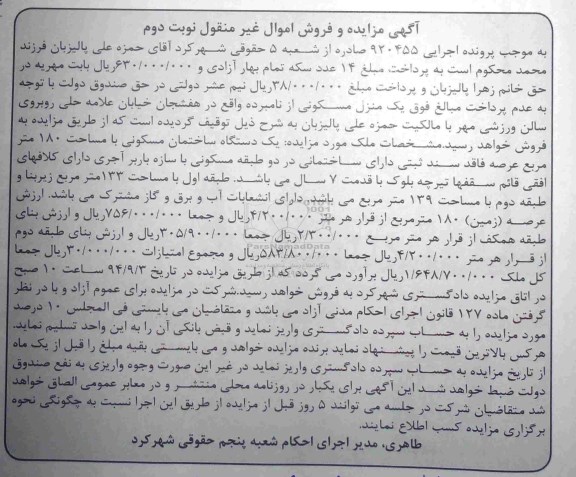 آگهی مزایده و فروش اموال غیر منقول نوبت دوم
به موجب پرونده اجرایی ۹۲۰۴۵۵ صادره از شعبه ۵ حقوقی شهرکرد آقای حمزه علی پالیزبان فرزند
محمد محکوم است به پرداخت مبلغ ۱۴ عدد سکه تمام بهار آزادی و ۶۳۰/۰۰۰/۰۰۰ریال بابت مهریه در
حق خانم زهرا پالیزبان و پرداخت مبلغ ۳۸/۰۰۰/۰۰۰ریال نیم عشر دولتی در حق صندوق دولت با توجه
به عدم پرداخت مبالغ فوق یک منزل مسکونی از نامبرده واقع در هفشجان خیابان علامه حلی روبروی
سالن ورزشی مهر با مالکیت حمزه علی پالیزبان به شرح ذیل توقیف گردیده است که از طریق مزایده به
فروش خواهد رسید.مشخصات ملک مورد مزایده: یک دستگاه ساختمان مسکونی با مساحت ۱۸۰ متر
مربع عرصه فاقد سند ثبتی دارای ساختمانی در دو طبقه مسکونی با سازه باربر آجری دارای کلافهای
افقی قائم سقفها تیرچه بلوک با قدمت ۷ سال می باشد. طبقه اول با مساحت ۱۳۳متر مربع زیربنا و
طبقه دوم با مساحت ۱۳۹ متر مربع می باشد. دارای انشعابات آب و برق و گاز مشترک می باشد. ارزش
عرصه (زمین) ۱۸۰ مترمربع از قرار هر متر ۴/۲۰۰/۰۰۰ریال و جمعا ۷۵۶/۰۰۰/۰۰۰ریال و ارزش بنای
طبقه همکف از قرار هر متر مربع ۲/۳۰۰/۰۰۰ریال جمعا ۳۰۵/۹۰۰/۰۰۰ریال و ارزش بنای طبقه دوم
از قرار هر متر ۴/۲۰۰/۰۰۰ریال جمعا ۵۸۳/۸۰۰/۰۰۰ریال و مجموع امتیازات ۳۰/۰۰۰/۰۰۰ریال جمعا
کل ملک ۱/۶۴۸/۷۰۰/۰۰۰ریال برآورد می گردد که از طریق مزایده در تاریخ ۹۴/۹/۳ ساعت ۱۰ صبح
در اتاق مزایده دادگستری شهرکرد به فروش خواهد رسید.شرکت در مزایده برای عموم آزاد و با در نظر
گرفتن ماده ۱۲۷ قانون اجرای احکام مدنی آزاد می باشد و متقاضیان می بایستی فی المجلس ۱۰ درصد
مورد مزایده را به حساب سپرده دادگستری واریز نماید و قبض بانکی آن را به این واحد تسلیم نماید.
هرکس بالاترین قیمت را پیشنهاد نماید برنده مزایده خواهد و می بایستی بقیه مبلغ را قبل از یک ماه
از تاریخ مزایده به حساب سپرده دادگستری واریز نماید در غیر این صورت وجوه واریزی به نفع صندوق
دولت ضبط خواهد شد این آگهی برای یکبار در روزنامه محلی منتشر و در معابر عمومی الصاق خواهد
شد متقاضیان شرکت در جلسه می توانند ۵ روز قبل از مزایده از طریق این اجرا نسبت به چگونگی نحوه
برگزاری مزایده کسب اطلاع نمایند.
طاهری، مدیر اجرای احکام شعبه پنجم حقوقی شهرکرد